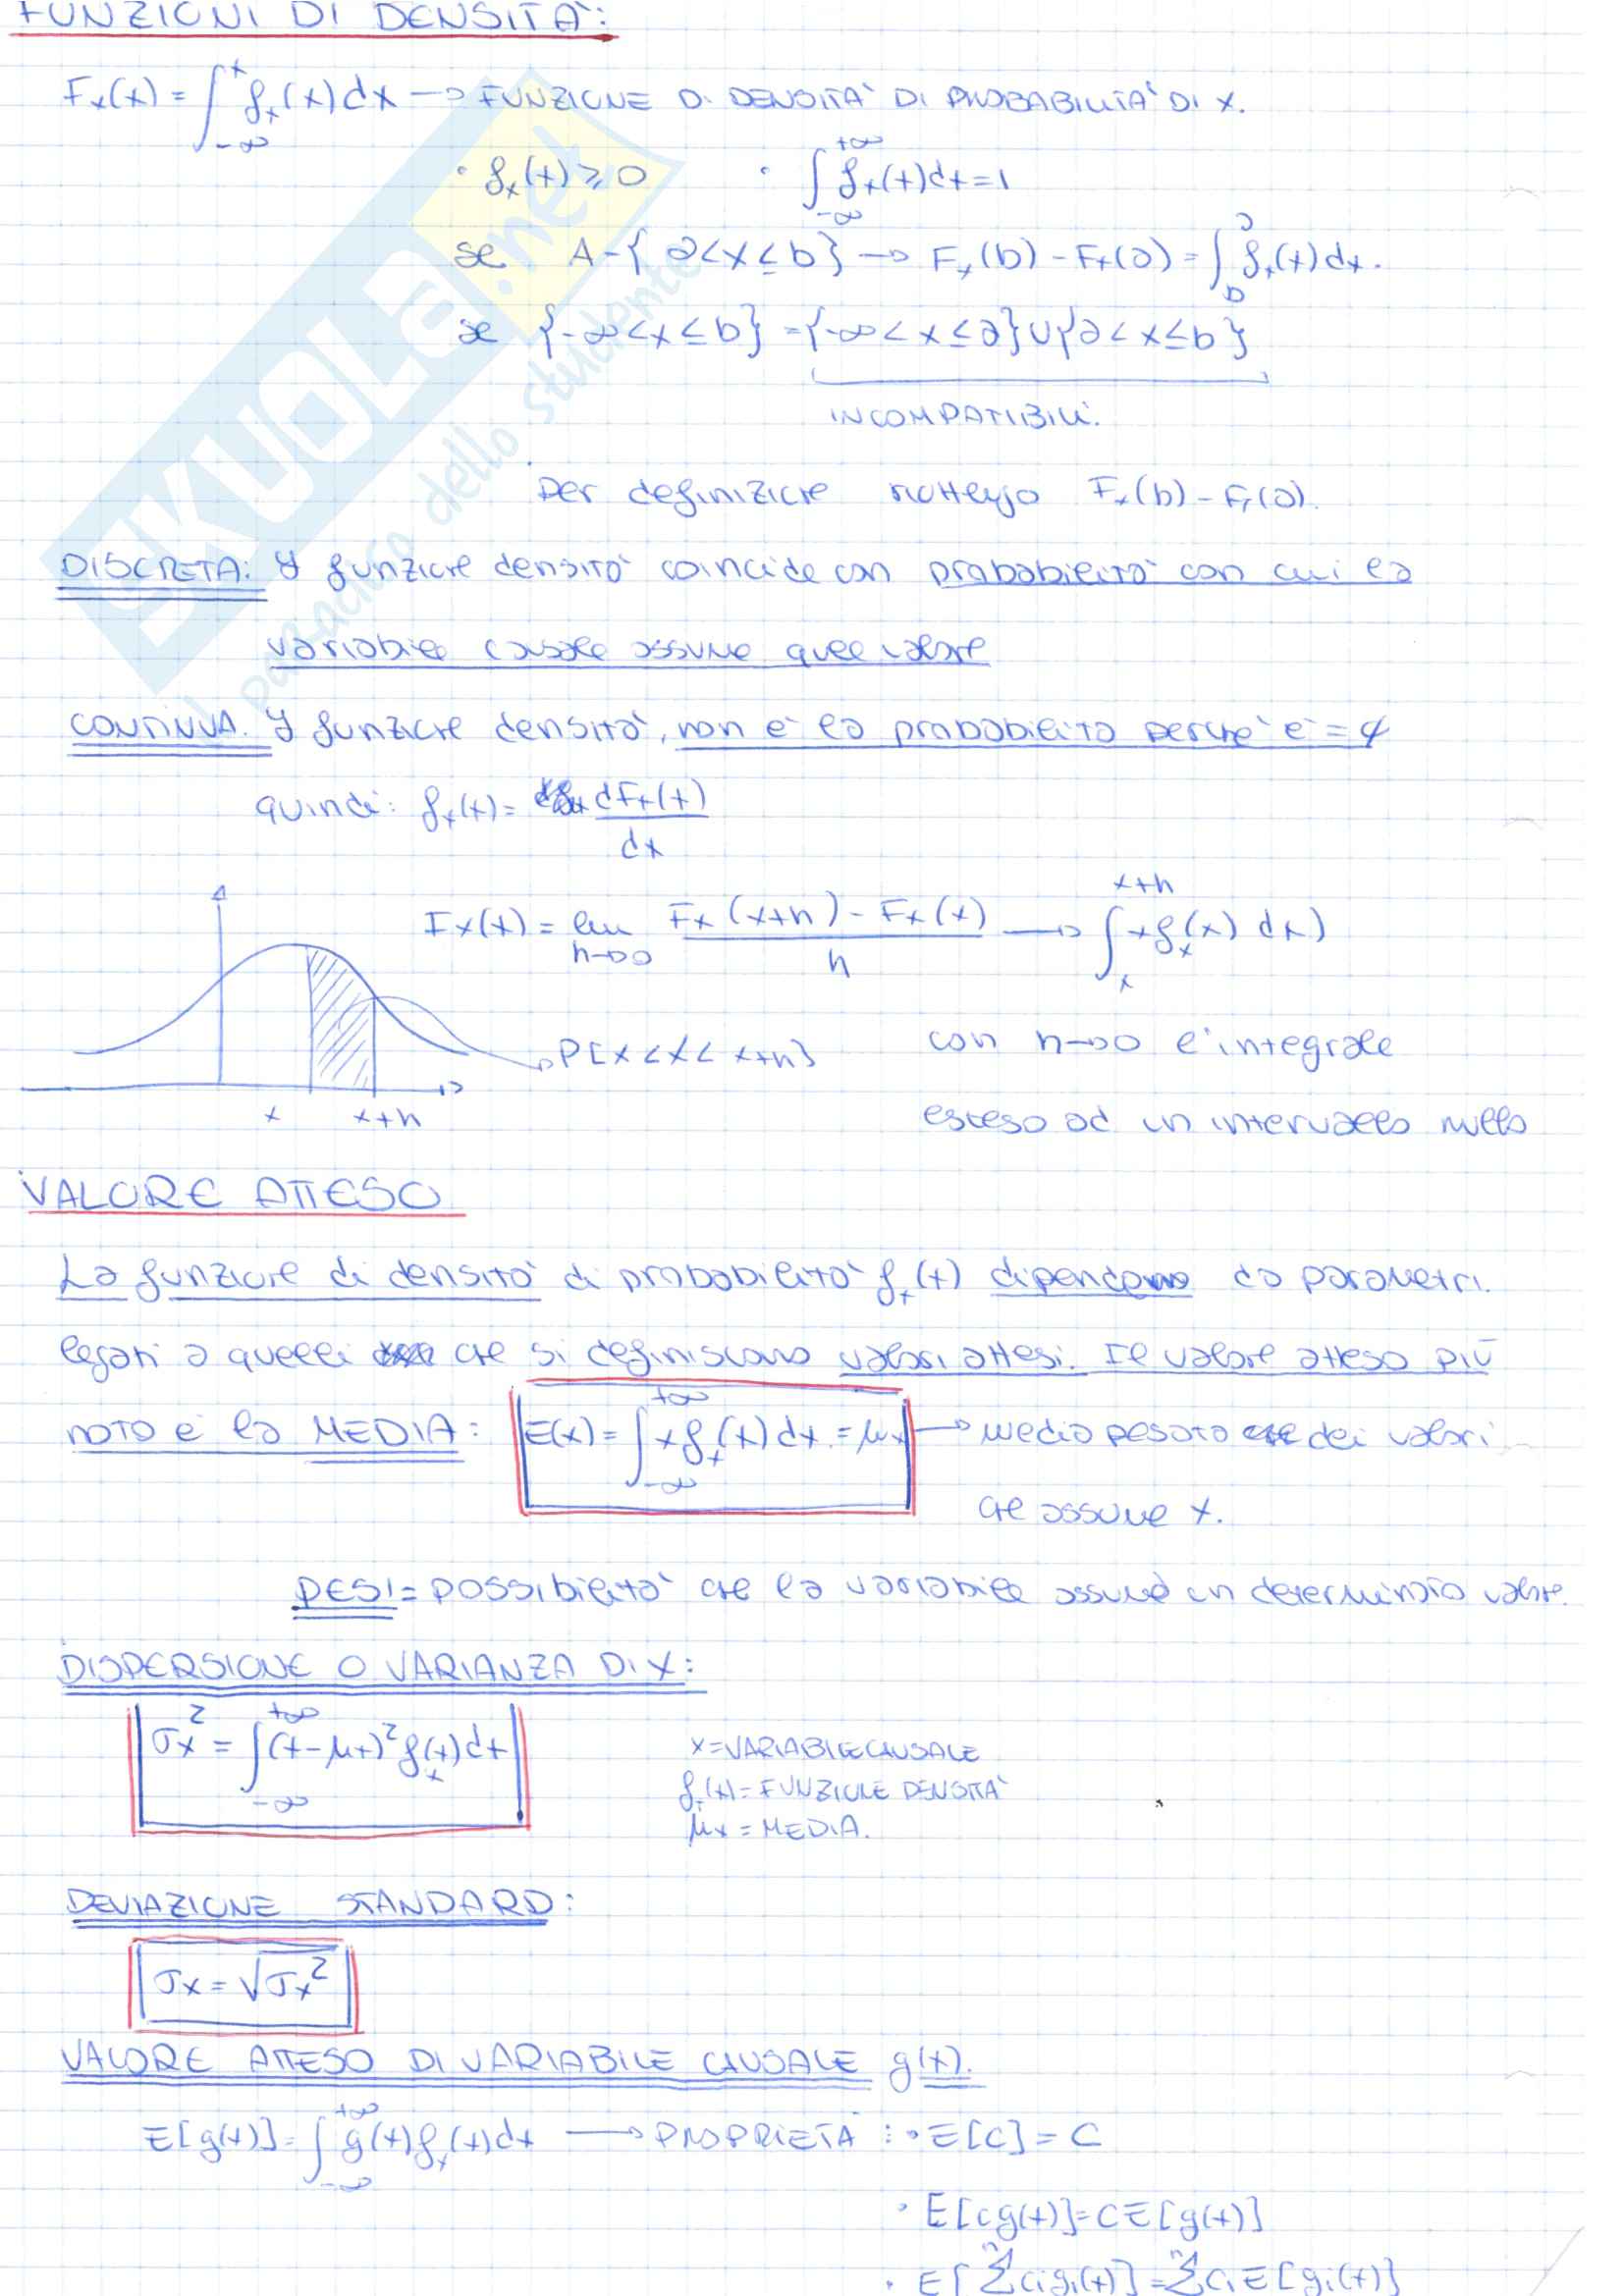 FUNZIONI DI DENSITÀ:
Fx(x) = ∫_{-∞}^{x} fx(x)dx → FUNZIONE DI DENSITÀ DI PROBABILITÀ DI X.
• fx(x) ≥ 0 • ∫_{-∞}^{+∞} fx(x)dx = 1
se A-{a<x≤b} → Fx(b) - Fx(a) = ∫_{b}^{a} fx(x)dx.
se {-∞<x≤b} = {-∞<x≤a}∪{a<x≤b}
INCOMPATIBILI.
Per definizione riottengo Fx(b) - Fx(a).
DISCRETA: funzione densità coincide con probabilità con cui la
variabile causale assume quel valore
CONTINUA. funzione densità, non è la probabilità perché è = ∅
quindi: fx(x) = dFx(x)/dx
Fx(x) = lim_{h→0} (Fx(x+h) - Fx(x))/h → ∫_{x}^{x+h} xfx(x) dx)
P{x<X<x+h} con h→0 l'integrale
x x+h
esteso ad un intervallo nullo
VALORE ATTESO
La funzione di densità di probabilità fx(x) dipendono da parametri.
legati a quelli che si definiscono valori attesi. Il valore atteso più
noto è la MEDIA: E(x) = ∫_{-∞}^{+∞} xfx(x)dx = μx → media pesata dei valori
che assume x.
PESI = possibilità che la variabile assume un determinato valore.
DISPERSIONE O VARIANZA DI X:
σx² = ∫_{-∞}^{+∞} (x-μx)² fx(x)dx
x = VARIABILE CAUSALE
fx(x) = FUNZIONE DENSITÀ
μx = MEDIA.
DEVIAZIONE STANDARD:
σx = √σx²
VALORE ATTESO DI VARIABILE CAUSALE g(x).
E[g(x)] = ∫_{-∞}^{+∞} g(x)fx(x)dx → PROPRIETÀ : • E[C] = C
• E[cg(x)] = CE[g(x)]
• E[Σⁿ cigi(x)] = Σⁿ ciE[gi(x)]
SKUOLA.net
il paradiso dello studente